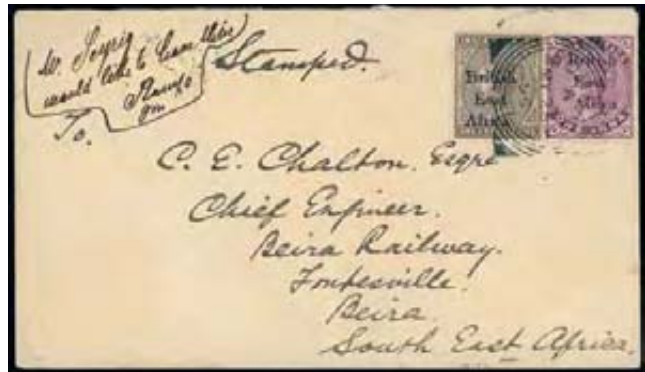 W. Soyrig
would like to have this
Stamp
gm
Stamped.
British
East
Africa
British
East
Africa
To.
C. E. Chalton. Esqre
Chief Engineer.
Beira Railway.
Fontesville.
Beira.
South East Africa.